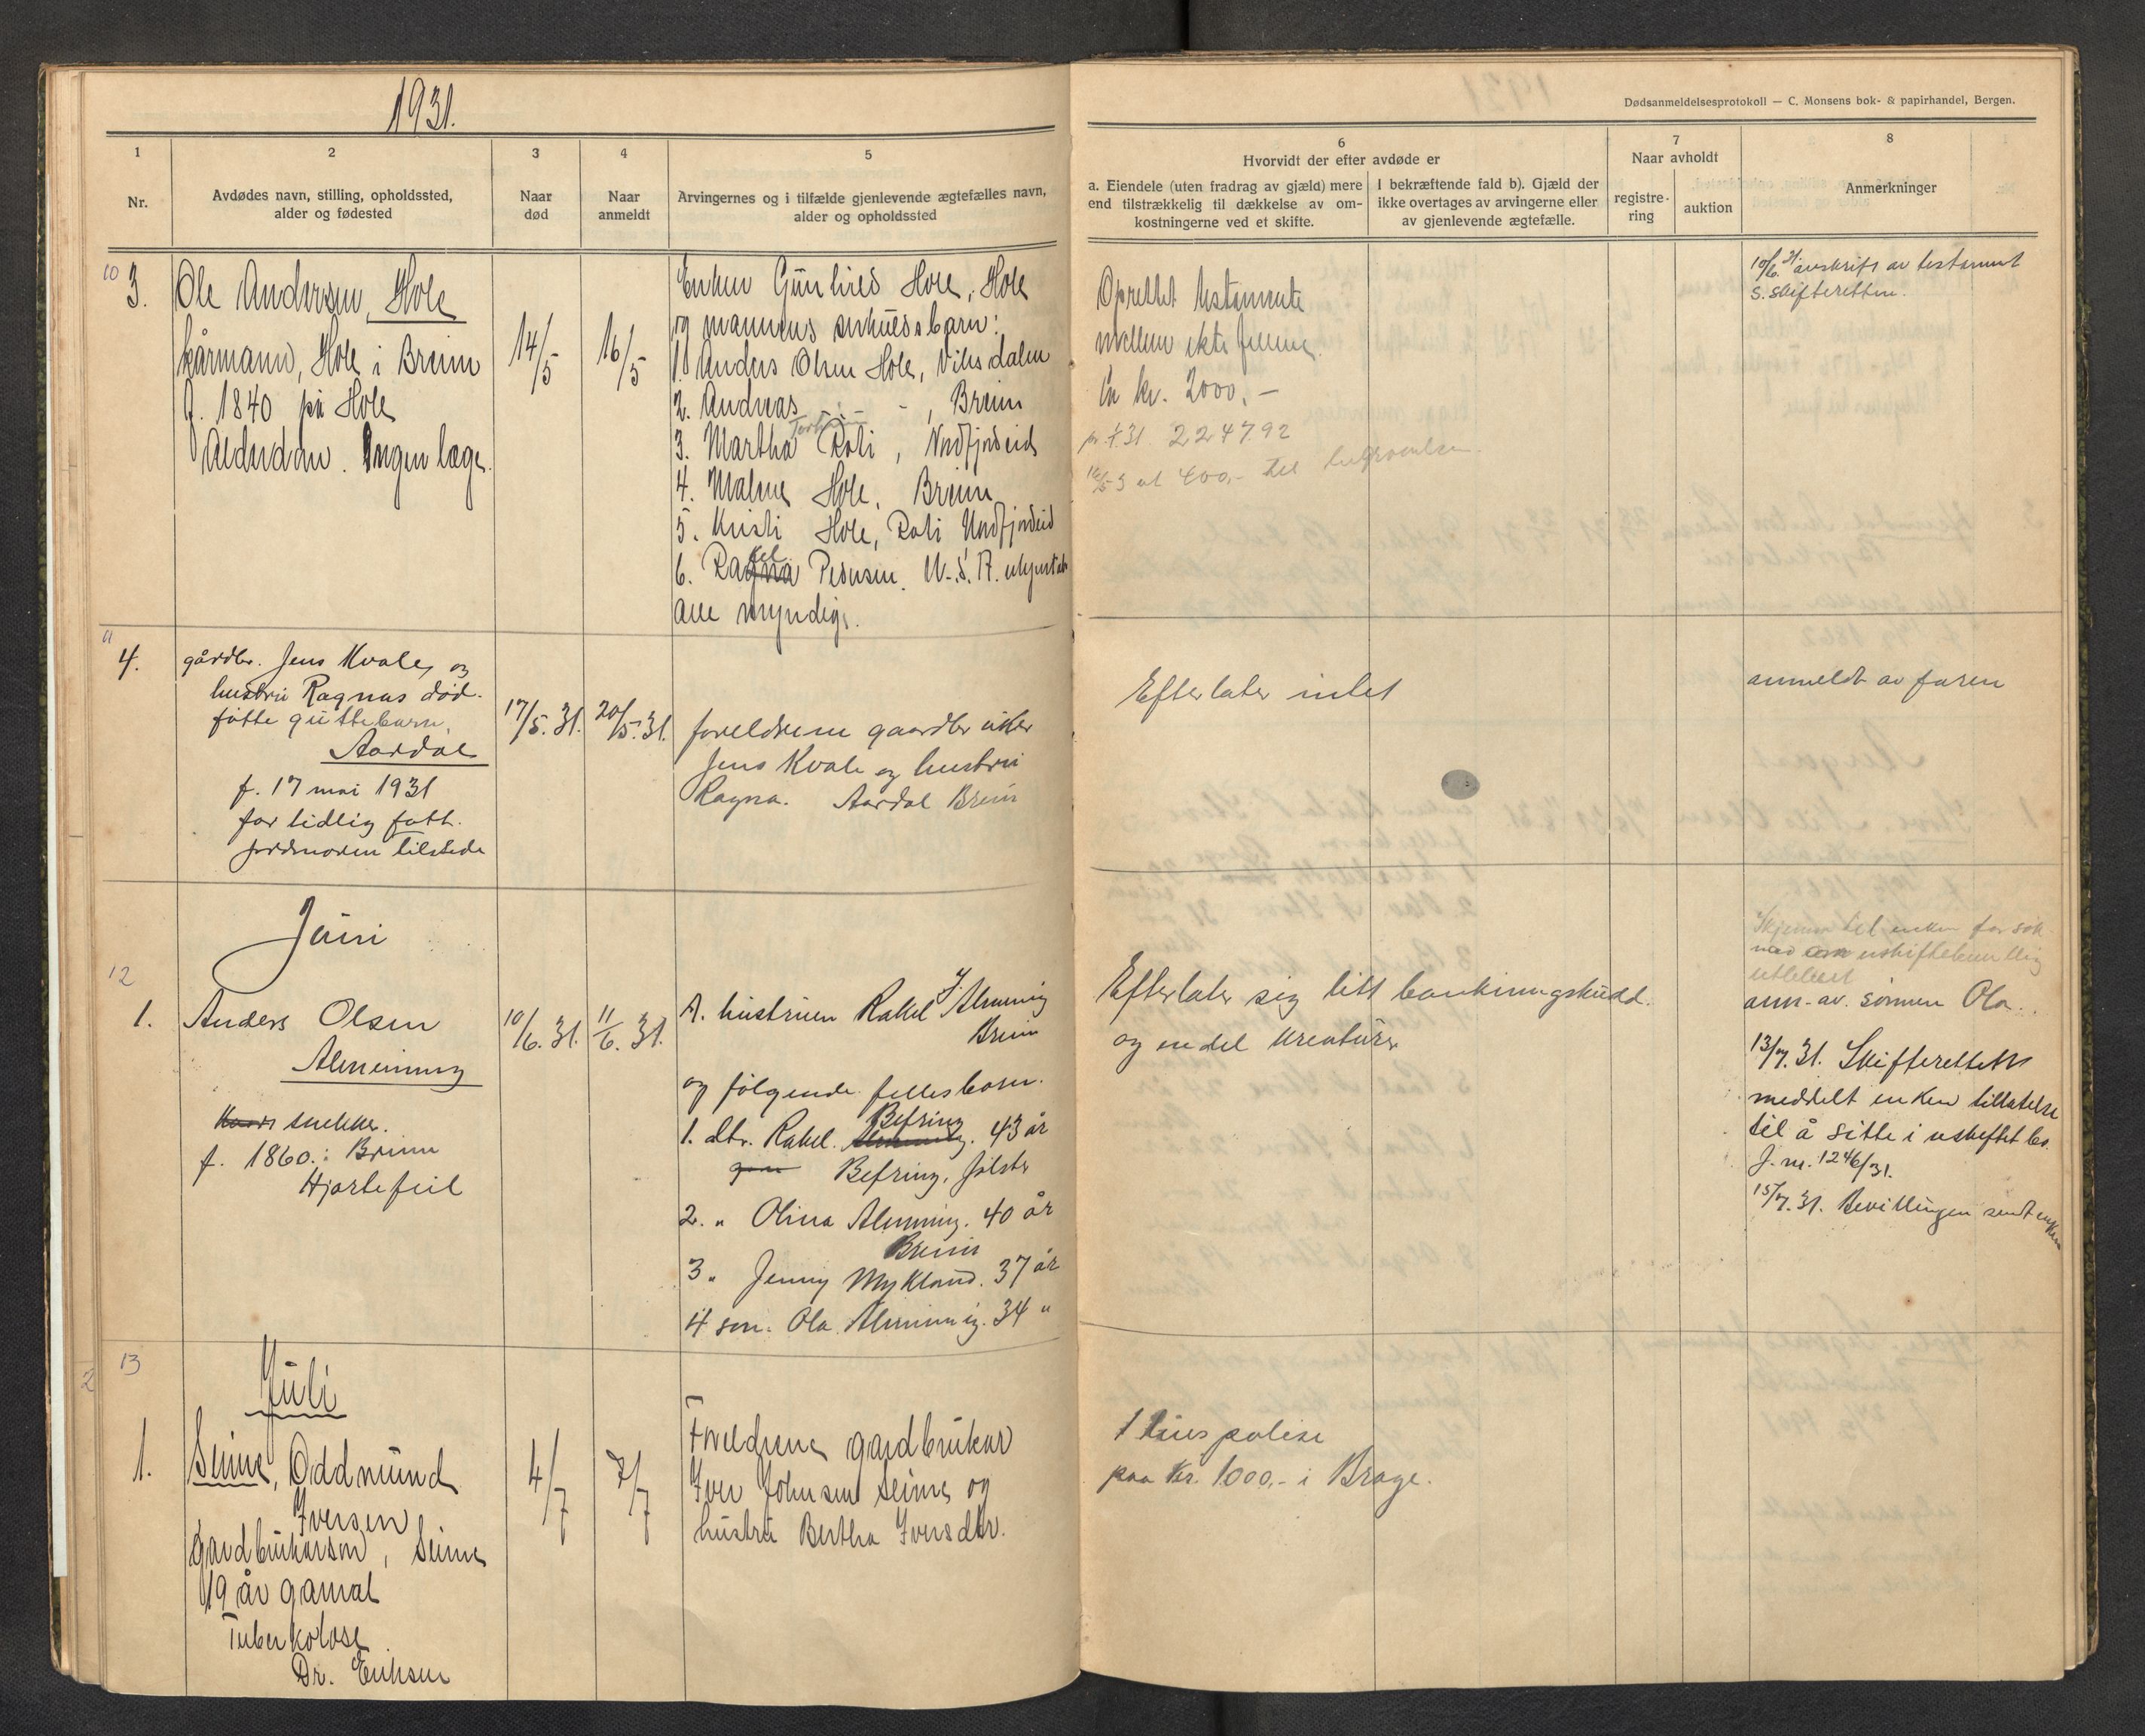 1931.
Dødsanmeldelsesprotokoll — C. Monsens bok- & papirhandel, Bergen.
1
2
3
4
5
6
7
8
Nr.
Avdødes navn, stilling, opholdssted,
alder og fødested
Naar
død
Naar
anmeldt
Arvingernes og i tilfælde gjenlevende ægtefælles navn,
alder og opholdssted
Hvorvidt der efter avdøde er
a. Eiendele (uten fradrag av gjæld) mere
end tilstrækkelig til dækkelse av om-
kostningerne ved et skifte.
I bekræftende fald b). Gjæld der
ikke overtages av arvingerne eller
av gjenlevende ægtefælle.
Naar avholdt
registre-
ring
auktion
Anmerkninger
10
3.
Ole Andersen, Hole
kårmann, Hole i Breim
f. 1840 på Hole
Alderdom. Ingen læge.
14/5
16/5
Enken Gunhild Hole, Hole
og mannens enkelds barn:
1. Anders Olsen Hole, Viksdalen
2. Andreas - " - - , Breim
3. Martha Roti, Nordfjordeid
4. Malene Hole, Breim
5. Kristi Hole, Roti Nordfjordeid
6. Rakel Pedersen. U.S.A.
alle myndige.
Oprettet testamente
mellem ektefellene.
En kr. 2000,-
pr. 1/1 31. 2247.92
16/5 31 ut 400,- til begravelsen.
10/6.31 avskrift av testament
s. skifteretten.
11
4.
gårdbr. Jens Kvale, og
hustru Ragnas død-
føtte guttebarn,
Aardal
f. 17 mai 1931
for tidlig født.
Jordmoren tilstede
17/5. 31.
20/5. 31.
foreldrene gaardbruker
Jens Kvale og hustru
Ragna. Aardal Breim
Efterlater intet
anmeldt av faren
Juni
12
1.
Anders Olsen
Almenning
snekker.
f. 1860. Breim
Hjartefeil
10/6. 31.
11/6. 31.
A. hustruen Rakel J. Almenning
Breim
og følgende fellesbarn.
1. dtr. Rakel Befring. 43 år
Befring, Jølster
2. " Olina Almenning. 40 år
Breim
3 " Jenny Mykland. 37 år
4 søn. Ola Almenning. 34 "
Efterlater sig litt bankinnskudd.
og endel kreaturer
Skjema til enken for søk-
nad om uskiftebevilling
utlevert
anm. av. sønnen Ola.
13/7. 31. Skifteretten
meddelt enken tillatelse
til å sitte i uskiftet bo.
J. nr. 1246/31.
15/7. 31. Bevillingen sendt enken
13
Juli
1.
Seime, Oddmund
Iversen
gardbrukarson, Seime
19 år gamal
Tuberkolose.
Dr. Eriksen
4/7
7/7
Foreldrene gardbrukar
Iver Johnsen Seime og
hustru Bertha Iversdtr.
1 livspolise
paa Kr. 1000,- i Brage.